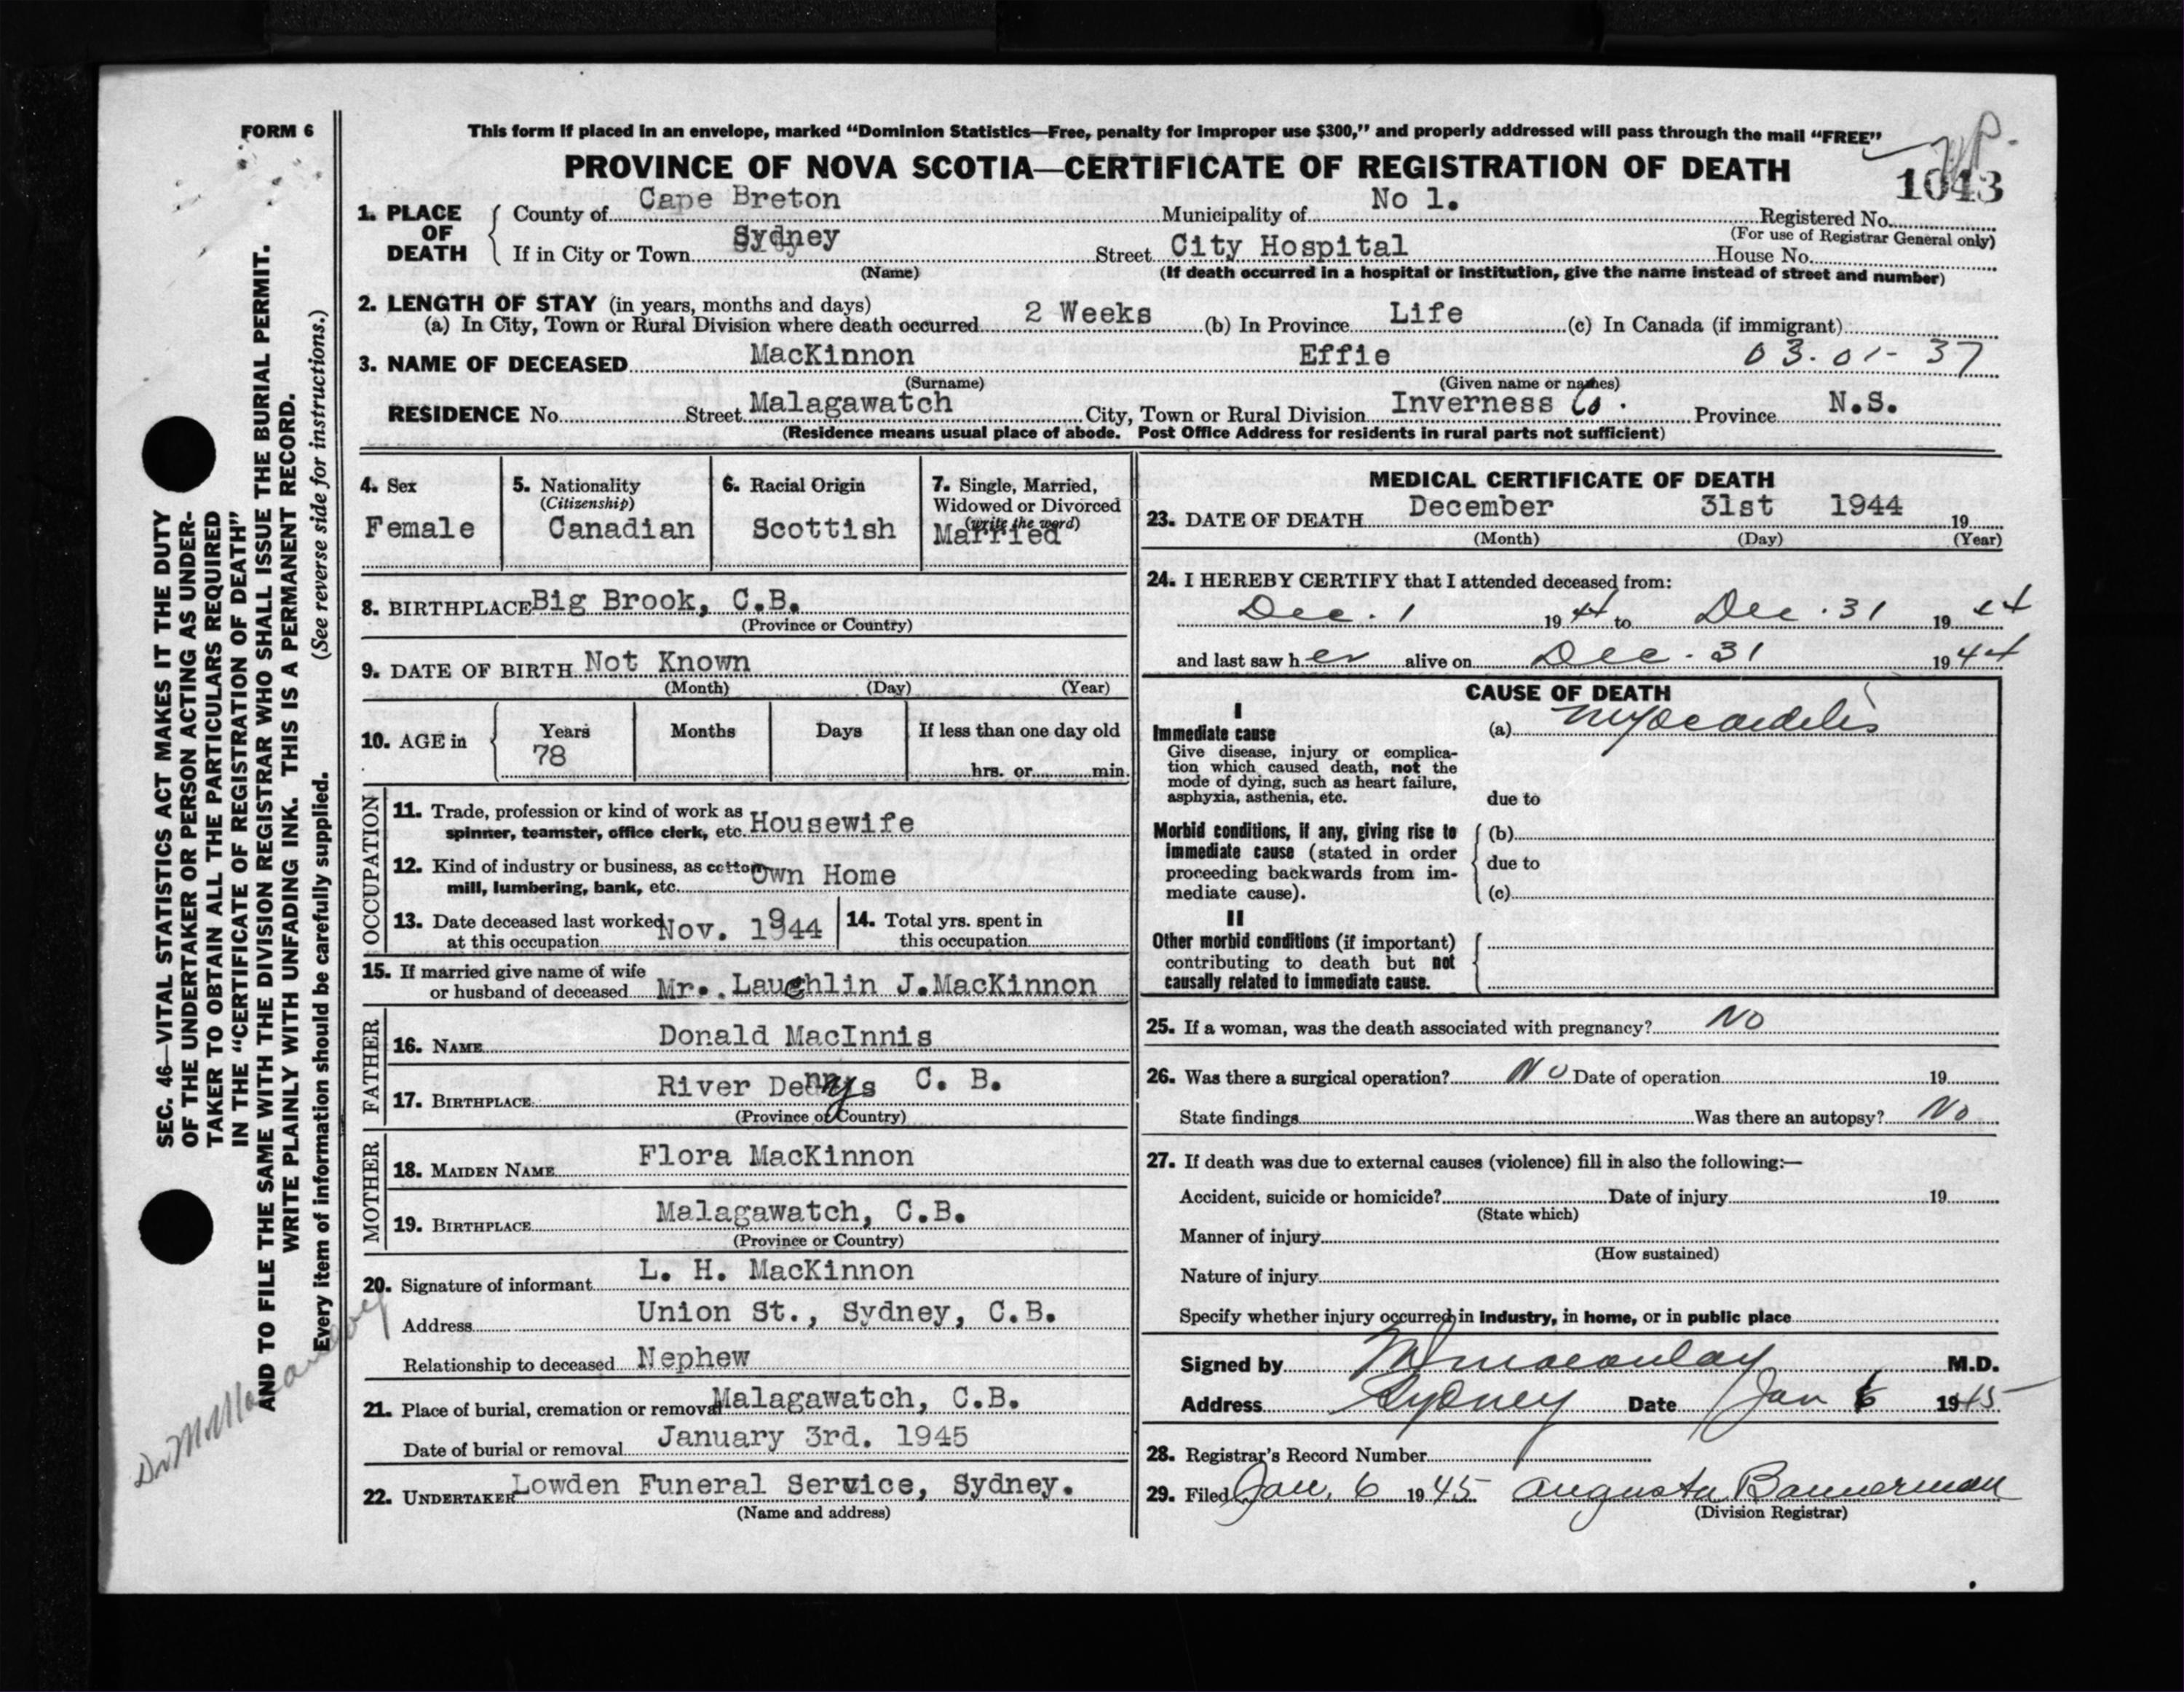 FORM 6
This form if placed in an envelope, marked “Dominion Statistics—Free, penalty for improper use $300,” and properly addressed will pass through the mail “FREE”
PROVINCE OF NOVA SCOTIA—CERTIFICATE OF REGISTRATION OF DEATH
1043
1. PLACE OF DEATH
County of Cape Breton Municipality of No 1. Registered No.
(For use of Registrar General only)
If in City or Town Sydney Street City Hospital House No.
(Name) (If death occurred in a hospital or institution, give the name instead of street and number)
2. LENGTH OF STAY (in years, months and days)
(a) In City, Town or Rural Division where death occurred 2 Weeks (b) In Province Life (c) In Canada (if immigrant)
3. NAME OF DECEASED MacKinnon Effie 03-01-37
(Surname) (Given name or names)
RESIDENCE No. Street Malagawatch City, Town or Rural Division Inverness Co. Province N.S.
(Residence means usual place of abode. Post Office Address for residents in rural parts not sufficient)
4. Sex
Female
5. Nationality
(Citizenship)
Canadian
6. Racial Origin
Scottish
7. Single, Married,
Widowed or Divorced
(write the word)
Married
8. BIRTHPLACE Big Brook, C.B.
(Province or Country)
9. DATE OF BIRTH Not Known
(Month) (Day) (Year)
10. AGE in Years Months Days If less than one day old
78
hrs. or min.
OCCUPATION
11. Trade, profession or kind of work as
spinner, teamster, office clerk, etc. Housewife
12. Kind of industry or business, as cotton
mill, lumbering, bank, etc. Own Home
13. Date deceased last worked
at this occupation Nov. 1944
14. Total yrs. spent in
this occupation
15. If married give name of wife
or husband of deceased Mr. Laughlin J.MacKinnon
FATHER
16. NAME Donald MacInnis
17. BIRTHPLACE River Dennys C. B.
(Province or Country)
MOTHER
18. MAIDEN NAME Flora MacKinnon
19. BIRTHPLACE Malagawatch, C.B.
(Province or Country)
20. Signature of informant L. H. MacKinnon
Address Union St., Sydney, C.B.
Relationship to deceased Nephew
21. Place of burial, cremation or removal Malagawatch, C.B.
Date of burial or removal January 3rd. 1945
22. UNDERTAKER Lowden Funeral Service, Sydney.
(Name and address)
MEDICAL CERTIFICATE OF DEATH
23. DATE OF DEATH December 31st 1944 19
(Month) (Day) (Year)
24. I HEREBY CERTIFY that I attended deceased from:
Dec. 1 1944 to Dec. 31 1944
and last saw her alive on Dec. 31 1944
CAUSE OF DEATH
I
Immediate cause
Give disease, injury or complica-
tion which caused death, not the
mode of dying, such as heart failure,
asphyxia, asthenia, etc.
(a) Myocardelis
due to
Morbid conditions, if any, giving rise to
immediate cause (stated in order
proceeding backwards from im-
mediate cause).
(b)
due to
(c)
II
Other morbid conditions (if important)
contributing to death but not
causally related to immediate cause.
25. If a woman, was the death associated with pregnancy? No
26. Was there a surgical operation? No Date of operation 19
State findings Was there an autopsy? No
27. If death was due to external causes (violence) fill in also the following:—
Accident, suicide or homicide? Date of injury 19
(State which)
Manner of injury
(How sustained)
Nature of injury
Specify whether injury occurred in industry, in home, or in public place
Signed by Macaulay M.D.
Address Sydney Date Jan 6 1945
28. Registrar’s Record Number
29. Filed Jan. 6 1945 Augusta Bannerman
(Division Registrar)
SEC. 46—VITAL STATISTICS ACT MAKES IT THE DUTY
OF THE UNDERTAKER OR PERSON ACTING AS UNDER-
TAKER TO OBTAIN ALL THE PARTICULARS REQUIRED
IN THE “CERTIFICATE OF REGISTRATION OF DEATH”
AND TO FILE THE SAME WITH THE DIVISION REGISTRAR WHO SHALL ISSUE THE BURIAL PERMIT.
WRITE PLAINLY WITH UNFADING INK. THIS IS A PERMANENT RECORD.
Every item of information should be carefully supplied. (See reverse side for instructions.)